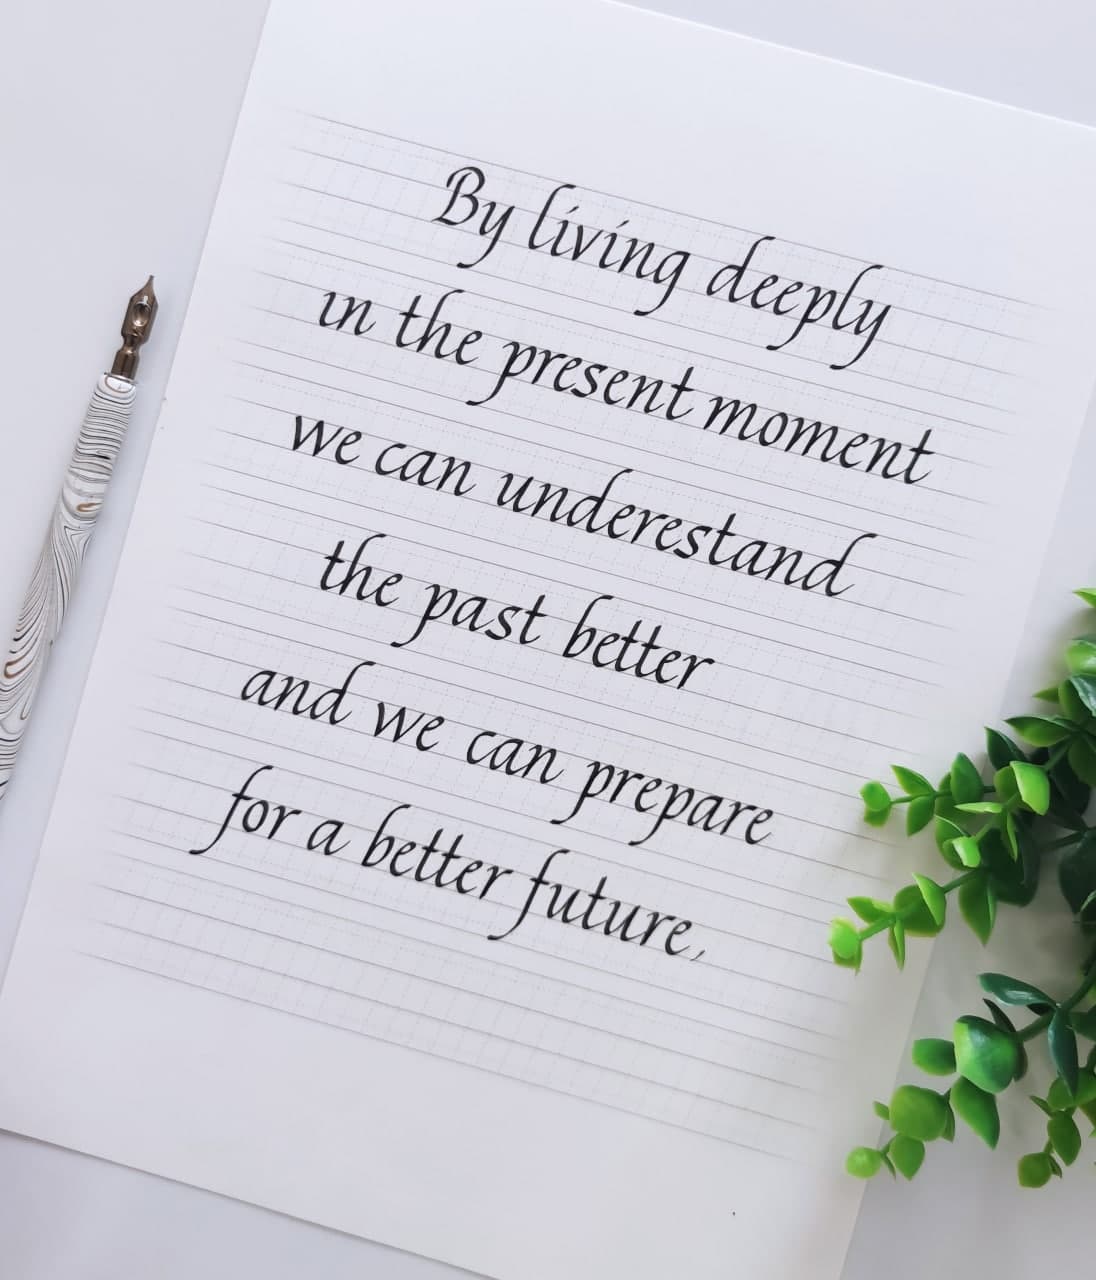 By living deeply
in the present moment
we can underestand
the past better
and we can prepare
for a better future,